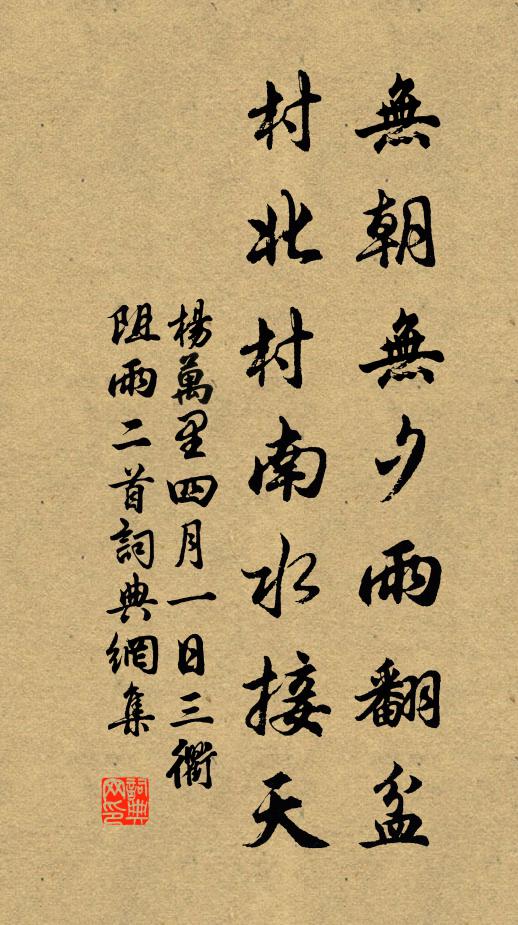 無朝無夕雨翻盆
村北村南水接天
楊萬里四月一日三衢
阻雨二首詞典網集
詞典
网印